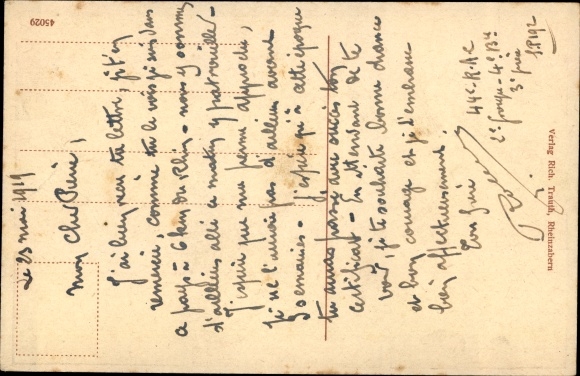 Le 23 mai 1919
Mon cher Pierre,
J'ai bien reçu ta lettre, je t'en
remercie, comme tu le vois je suis dans
a pays à 6 km du Rhin - nous y sommes
d'ailleurs allé ce matin y patrouiller -
J'espère que ma perme approche,
Je ne l'aurai pas d'ailleurs avant
3 semaines - J'espère qu'à cette époque
tu auras passé avec succès ton
certificat - En attendant de te
voir, je te souhaite bonne chance
et bon courage et je t'embrasse
bien affectueusement.
Ton frère
44e R.A.C
2e groupe - 4e Bie
3e pièce
S.P. 192
Verlag Rich. Trauth, Rheinzabern
45029